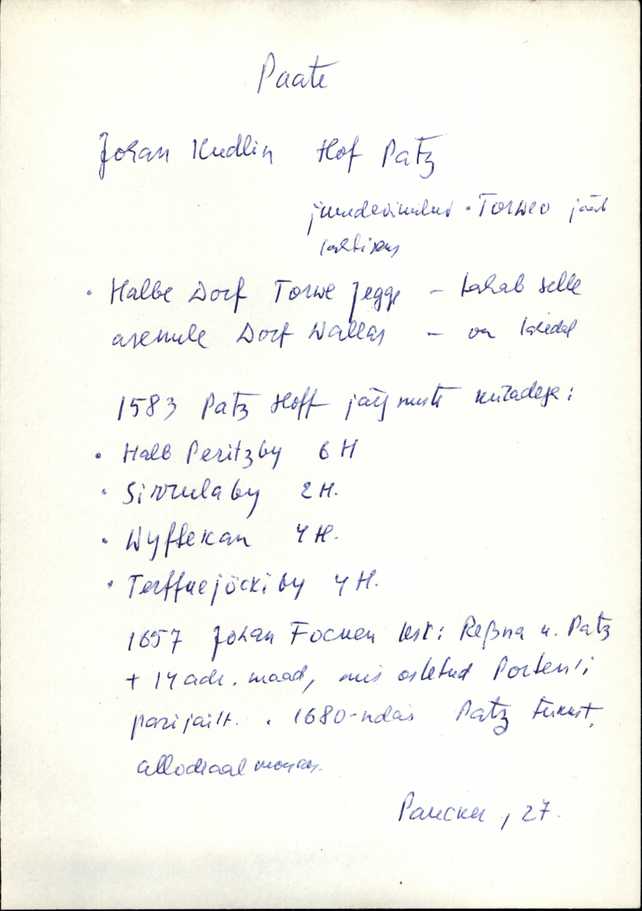 Paate
Johan Kudlin Hof Patz
juurdevõetud • Torweo jääb
• Halbe Dorf Torwe Jegge – tahab selle
asemele Dorf Wallas – on
1583 Patz Hoff järgmiste küladega:
• Halb Peritzby 6 H
• Sirrulaby 2 H.
• Wyftekan 4 H.
• Terffuejöckiby 4 H.
1657 Johan Focken Reßna u. Patz
+ 14 adr. maad, mis ostetud Porten'i
parijailt. • 1680-ndais Patz
allodiaal
Paucker, 27.